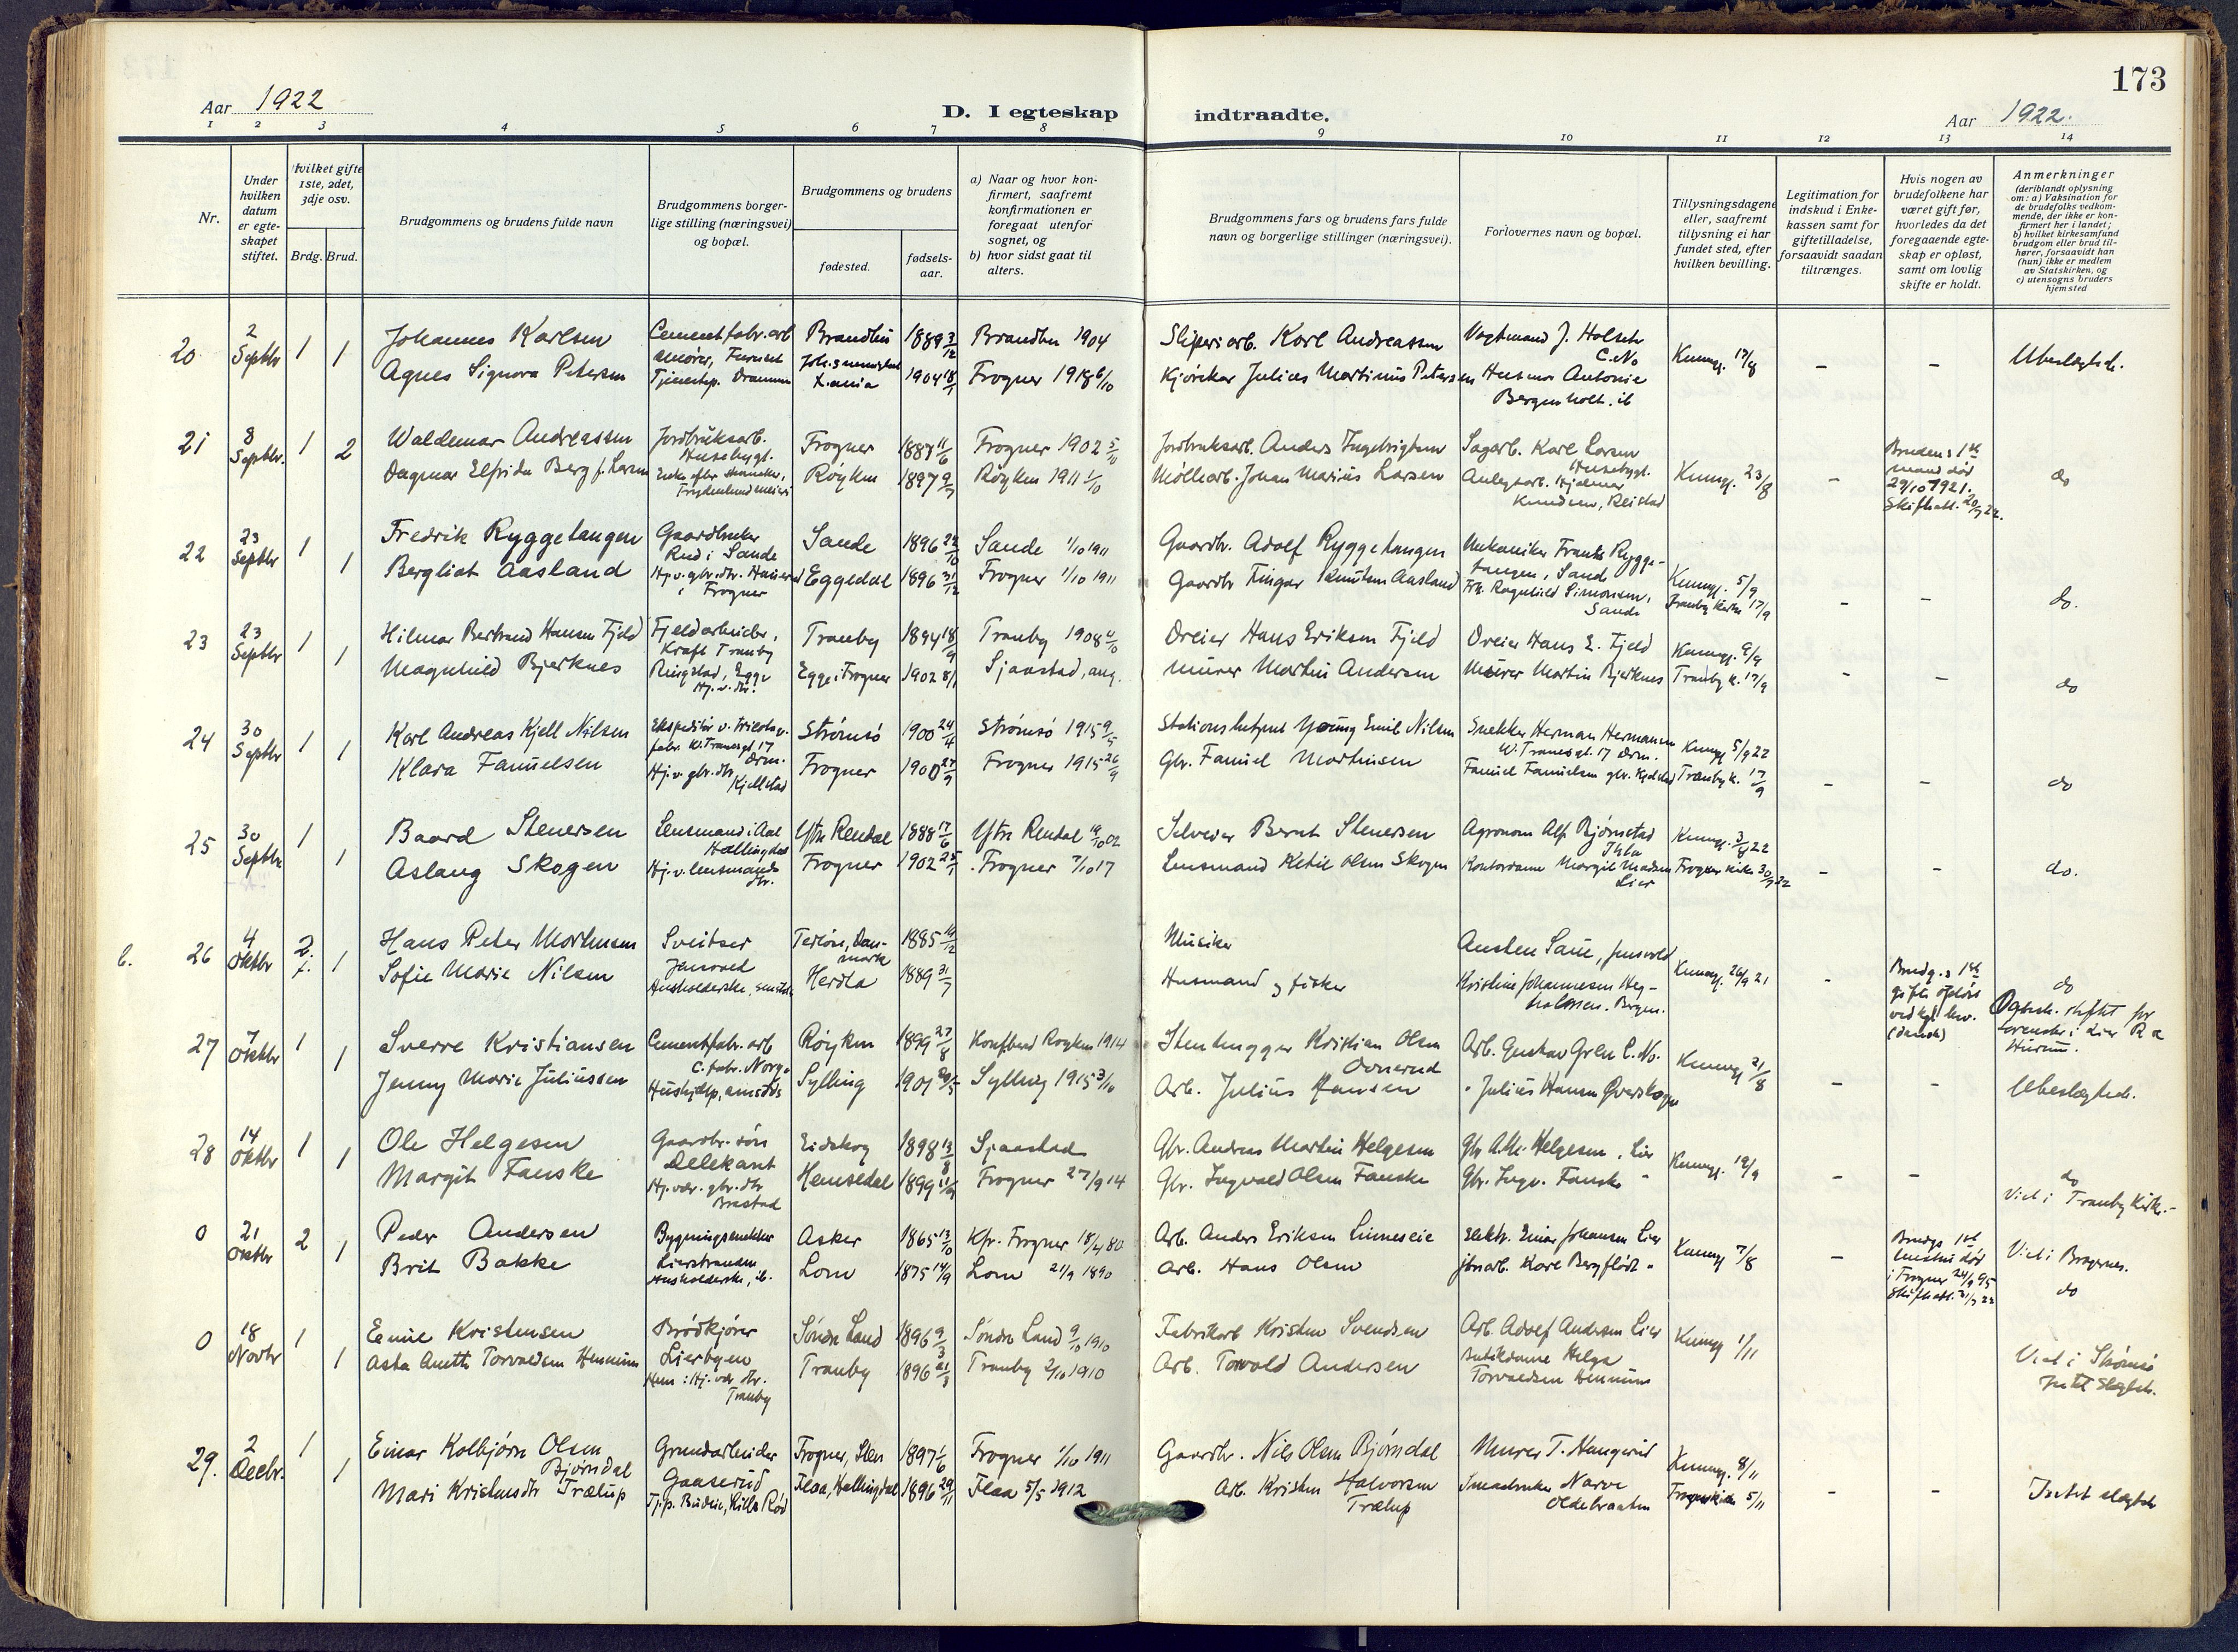 173
Aar 1922
D. I egteskap indtraadte.
Aar 1922.
1 2 3 4 5 6 7 8 9 10 11 12 13 14
Nr.
Under
hvilken
datum
er egte-
skapet
stiftet.
Hvilket gifte
1ste, 2det,
3dje osv.
Brdg. Brud.
Brudgommens og brudens fulde navn
Brudgommens borger-
lige stilling (næringsvei)
og bopæl.
Brudgommens og brudens
fødested.
fødsels-
aar.
a) Naar og hvor kon-
firmert, saafremt
konfirmationen er
foregaat utenfor
sognet, og
b) hvor sidst gaat til
alters.
Brudgommens fars og brudens fars fulde
navn og borgerlige stillinger (næringsvei).
Forlovernes navn og bopæl.
Tillysningsdagene
eller, saafremt
tillysning ei har
fundet sted, efter
hvilken bevilling.
Legitimation for
indskud i Enke-
kassen samt for
giftetilladelse,
forsaavidt saadan
tiltrænges.
Hvis nogen av
brudefolkene har
været gift før,
hvorledes da det
foregaaende egte-
skap er opløst,
samt om lovlig
skifte er holdt.
Anmerkninger
(deriblandt oplysning
om: a) Vaksination for
de brudefolks vedkom-
mende, der ikke er kon-
firmert her i landet;
b) hvilket kirkesamfund
brudgom eller brud til-
hører, forsaavidt han
(hun) ikke er medlem
av Statskirken, og
c) utensogns bruders
hjemsted
20 2 Septbr 1 1
Johannes Karlsen
Agnes Signora Petersen
Cementfabr. arb
Tjenestep. Drammen
Brandbu
X.ania
1889 3/12
1904 18/1
Brandbu 1904
Frogner 1918 6/10
Sliperiarb. Karl Andreassen
Kjørekar Julius Martinus Petersen
Vagtmand J. Holseth
C. No
Husmor Antonie
Bergenholt. ib
Kunngj. 17/8
- -
Ubeslegtede.
21 8 Septbr. 1 2
Waldemar Andreassen
Dagmar Elfrida Berg f. Larsen
Jordbruksarb.
Husebygt.
Frogner
Røyken
1887 11/6
1897 9/7
Frogner 1902 5/10
Røyken 1911 1/10
Jordbruksarb. Anders Ingebrigtsen
Møllearb. Johan Marius Larsen
Sagarb. Karl Larsen
Husebygt.
Anlegsarb. Hjalmar
Knudsen, Reistad
Kunngj. 23/8
-
Brudens 1ste
mand død
29/10 1921.
Skifteatt. 20/7 22.
do
22 23 Septbr 1 1
Fredrik Ryggetangen
Bergliot Aasland
Gaardbruker
Rud i Sande
i Frogner
Sande
Eggedal
1896 22/10
1896 31/12
Sande 1/10 1911
Frogner 1/10 1911
Gaardbr. Adolf Ryggetangen
Gaardbr Fingar Knutsen Aasland
Mekaniker Frants Rygge-
tangen, Sande
Frk. Ragnhild Simonsen,
Sande
Kunngj. 5/9
Tranby kirke 17/9
- -
do.
23 23 Septbr 1 1
Hilmar Bertrand Hansen Fjeld
Magnhild Bjerknes
Fjeldarbeider,
Kraft Tranby
Ringstad, Egge
Hj. v. dtr.
Tranby
Egge i Frogner
1894 18/9
1902 8/1
Tranby 1908 4/10
Sjaastad, ang.
Dreier Hans Eriksen Fjeld
Murer Martin Andersen
Dreier Hans E. Fjeld
Murer Martin Bjerknes
Kunngj. 9/9
Tranby k. 17/9
- -
do
24 30 Septbr 1 1
Karl Andreas Kjell Nilsen
Klara Fanuelsen
Ekspeditør v.
Drm.
Hj. v. gbr. dtr
Kjellstad
Strømsø
Frogner
1900 24/4
1900 27/9
Strømsø 1915 9/5
Frogner 1915 26/9
Stationsbetjent Young Emil Nilsen
Gbr. Fanuel Martinsen
Snekker Herman Hermansen
W. Tranesgt. 17 Drm.
Fanuel Fanuelsen gbr. Kjellstad
Kunngj 5/9 22
Tranby k. 17/9
- -
do
25 30 Septbr 1 1
Baard Stenersen
Aslaug Skogen
Lensmand i Aal
Hallingdal
Hj. v. lensmands
dtr.
Ytre Rendal
Frogner
1888 17/6
1902 25/1
Ytre Rendal 19/10 02
Frogner 7/10 17
Selveier Bernt Stenersen
Lensmand Ketil Olsen Skogen
Agronom Alf Bjørnstad
Kontordame Margit Madsen
Lier
Kunngj. 3/8 22
Frogner kirke 30/7 22
- -
do.
b. 26 4 Oktbr 2. f. 1
Hans Peter Mortensen
Sofie Marie Nilsen
Sveitser
Jensvold
Husholderske, smstds
Terløse, Dan-
mark
Herdla
1885 14/12
1889 31/7
Musiker
Husmand og fisker
Austen Saue, Jensvold
Kristine Johannesen Heg-
Bergen.
Kunngj. 26/9 21
-
Brudg.s 1ste
gifte opløst
ved kgl. bev.
(dansk)
do
for
i Lier R a
Hurum.
27 7 Oktbr 1 1
Sverre Kristiansen
Jenny Marie Juliussen
Cementfabr. arb
C. fabr. Norge
Hushjelp, smstds
Røyken
Sylling
1899 27/8
1901 20/5
Konfberd Røyken 1914
Sylling 1915 3/10
Stenhugger Kristian Olsen
Ovnerud
Arb. Julius Hansen
Arb. Gustav Gren C. No.
" Julius Hansen Øverskogen
Kunngj 21/8
- -
Ubeslegtede.
28 14 Oktbr 1 1
Ole Helgesen
Margit Fauske
Gaardbr. søn
Delekant
Hj. vær. gbr. dtr
Brastad
Eidskog
Hemsedal
1898 13/8
1899
Sjaastad
Frogner 27/9 14
Gbr. Andreas Martin Helgesen
Gbr. Ingvald Olsen Fauske
Gbr A.M. Helgesen, Lier
Gbr. Ingv. Fauske "
Kunngj. 19/9
- -
do
Viet i Tranby kirke.-
0 21 Oktbr 2 1
Peder Andersen
Brit Bakke
Bygningssnekker
Lierstranden
Husholderske, ib.
Asker
Lom
1865 13/10
1875 14/9
Kfr. Frogner 18/4 80
Lom 21/9 1890
Arb. Anders Eriksen Linneseie
Arb. Hans Olsen
Elektr. Einar Johansen Lier
jbnarb. Kare Bergflødt "
Kunngj 7/8
-
Brudgs 1ste
hustru død
i Frogner 24/9 95
Skifteatt. 31/7 22
Viet i Bragernes.
do
0 18 Novbr 1 1
Emil Kristensen
Asta Anette Torvaldsen Hennum
Brødkjører
Lierbyen
Hun: Hj. vær. dtr.
Tranby
Søndre Land
Tranby
1896 9/3
1896 21/8
Søndre Land 9/10 1910
Tranby 2/10 1910
Fabrikarb Kristen Svendsen
Arb. Torvald Andersen
Arb. Adolf Andersen Lier
Butikdame Helga
Torvaldsen Hennum
Kunngj 1/11
Viet i Strømsø
Intet slegtsk.
29. 2 Decbr. 1 1
Einar Kolbjørn Olsen
Bjørndal
Mari Kristensdtr Trælup
Grundarbeider
Gaaserud
Tj.p. Budeie, Lille Rød
Frogner, Lier
Flaa, Hallingdal
1897 1/6
1896 29/11
Frogner 1/10 1911
Flaa 5/5 1912
Gaardbr. Nils Olsen Bjørndal
Arb. Kristen Halvorsen
Trælup
Murer T. Haugerud
Smaabruker Narve
Oldebraaten
Kunngj. 8/11
Frogner kirke 5/11
- -
Intet slegtsk